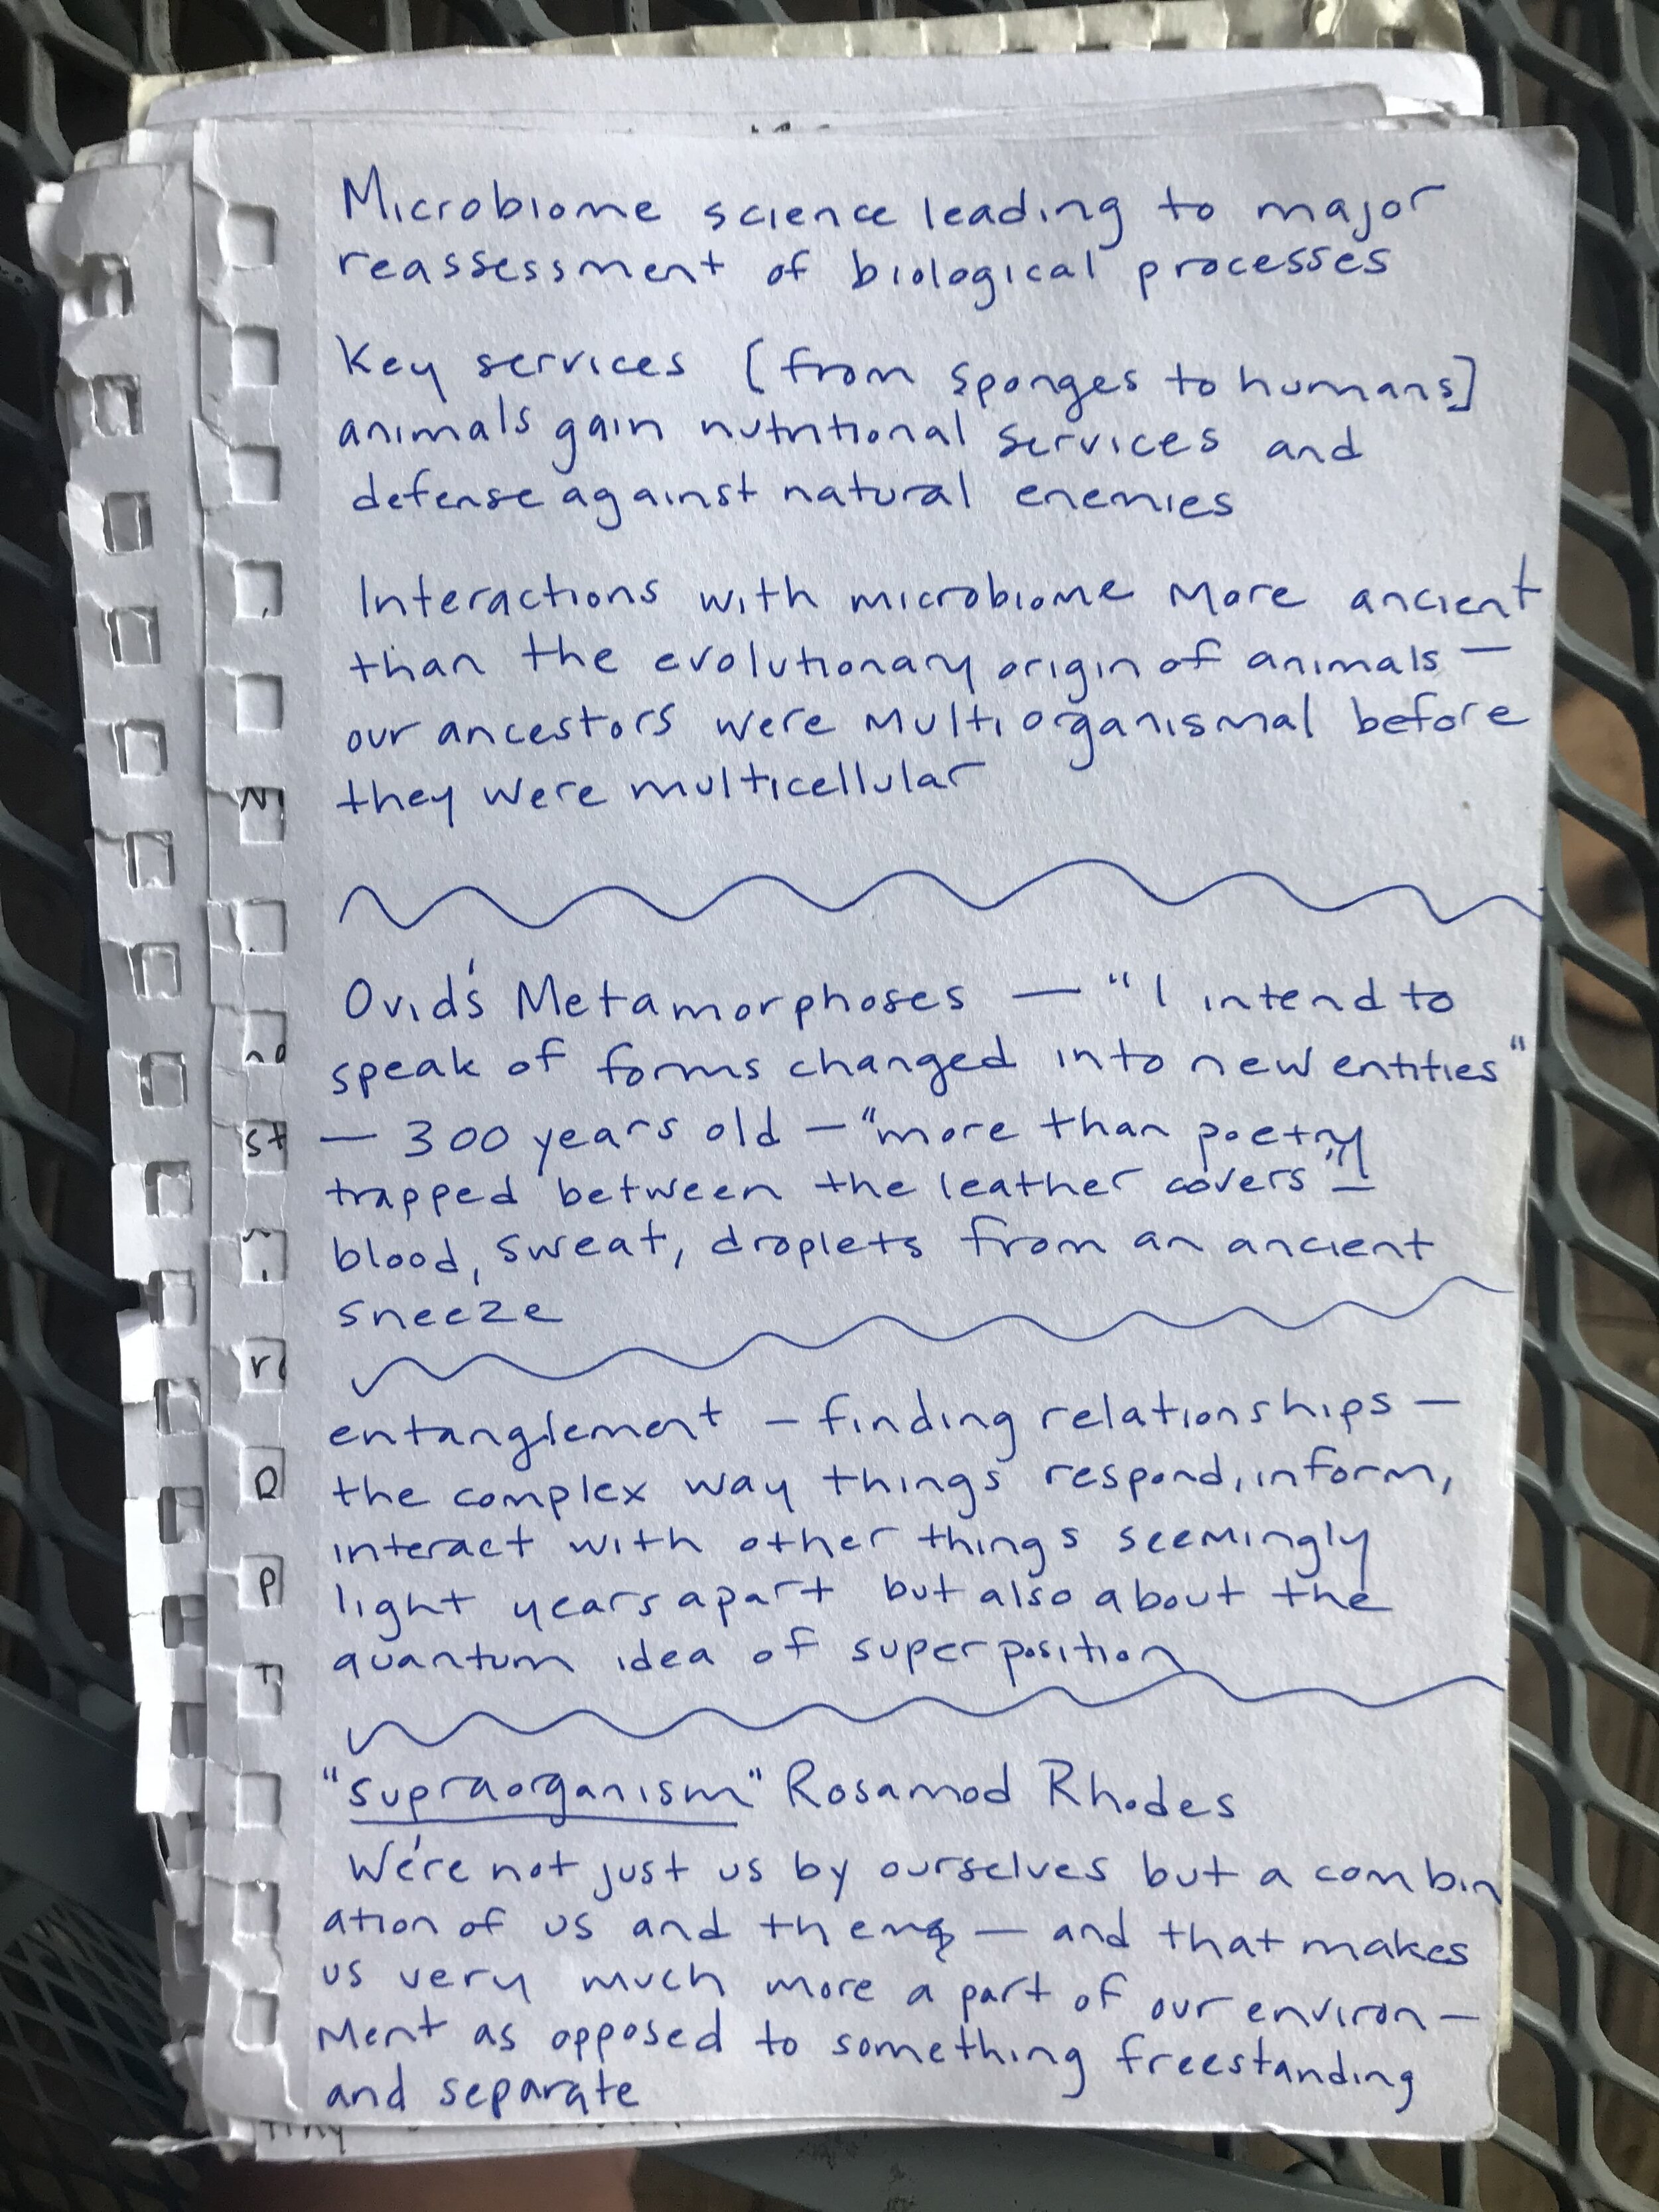 Microbiome science leading to major
reassessment of biological processes
Key services [from sponges to humans]
animals gain nutritional services and
defense against natural enemies
Interactions with microbiome more ancient
than the evolutionary origin of animals —
our ancestors were multiorganismal before
they were multicellular
Ovid's Metamorphoses — "I intend to
speak of forms changed into new entities"
— 300 years old — "more than poetry
trapped between the leather covers" —
blood, sweat, droplets from an ancient
sneeze
entanglement — finding relationships —
the complex way things respond, inform,
interact with other things seemingly
light years apart but also about the
quantum idea of superposition
"supraorganism" Rosamod Rhodes
We're not just us by ourselves but a combin
ation of us and them — and that makes
us very much more a part of our environ —
ment as opposed to something freestanding
and separate
tiny